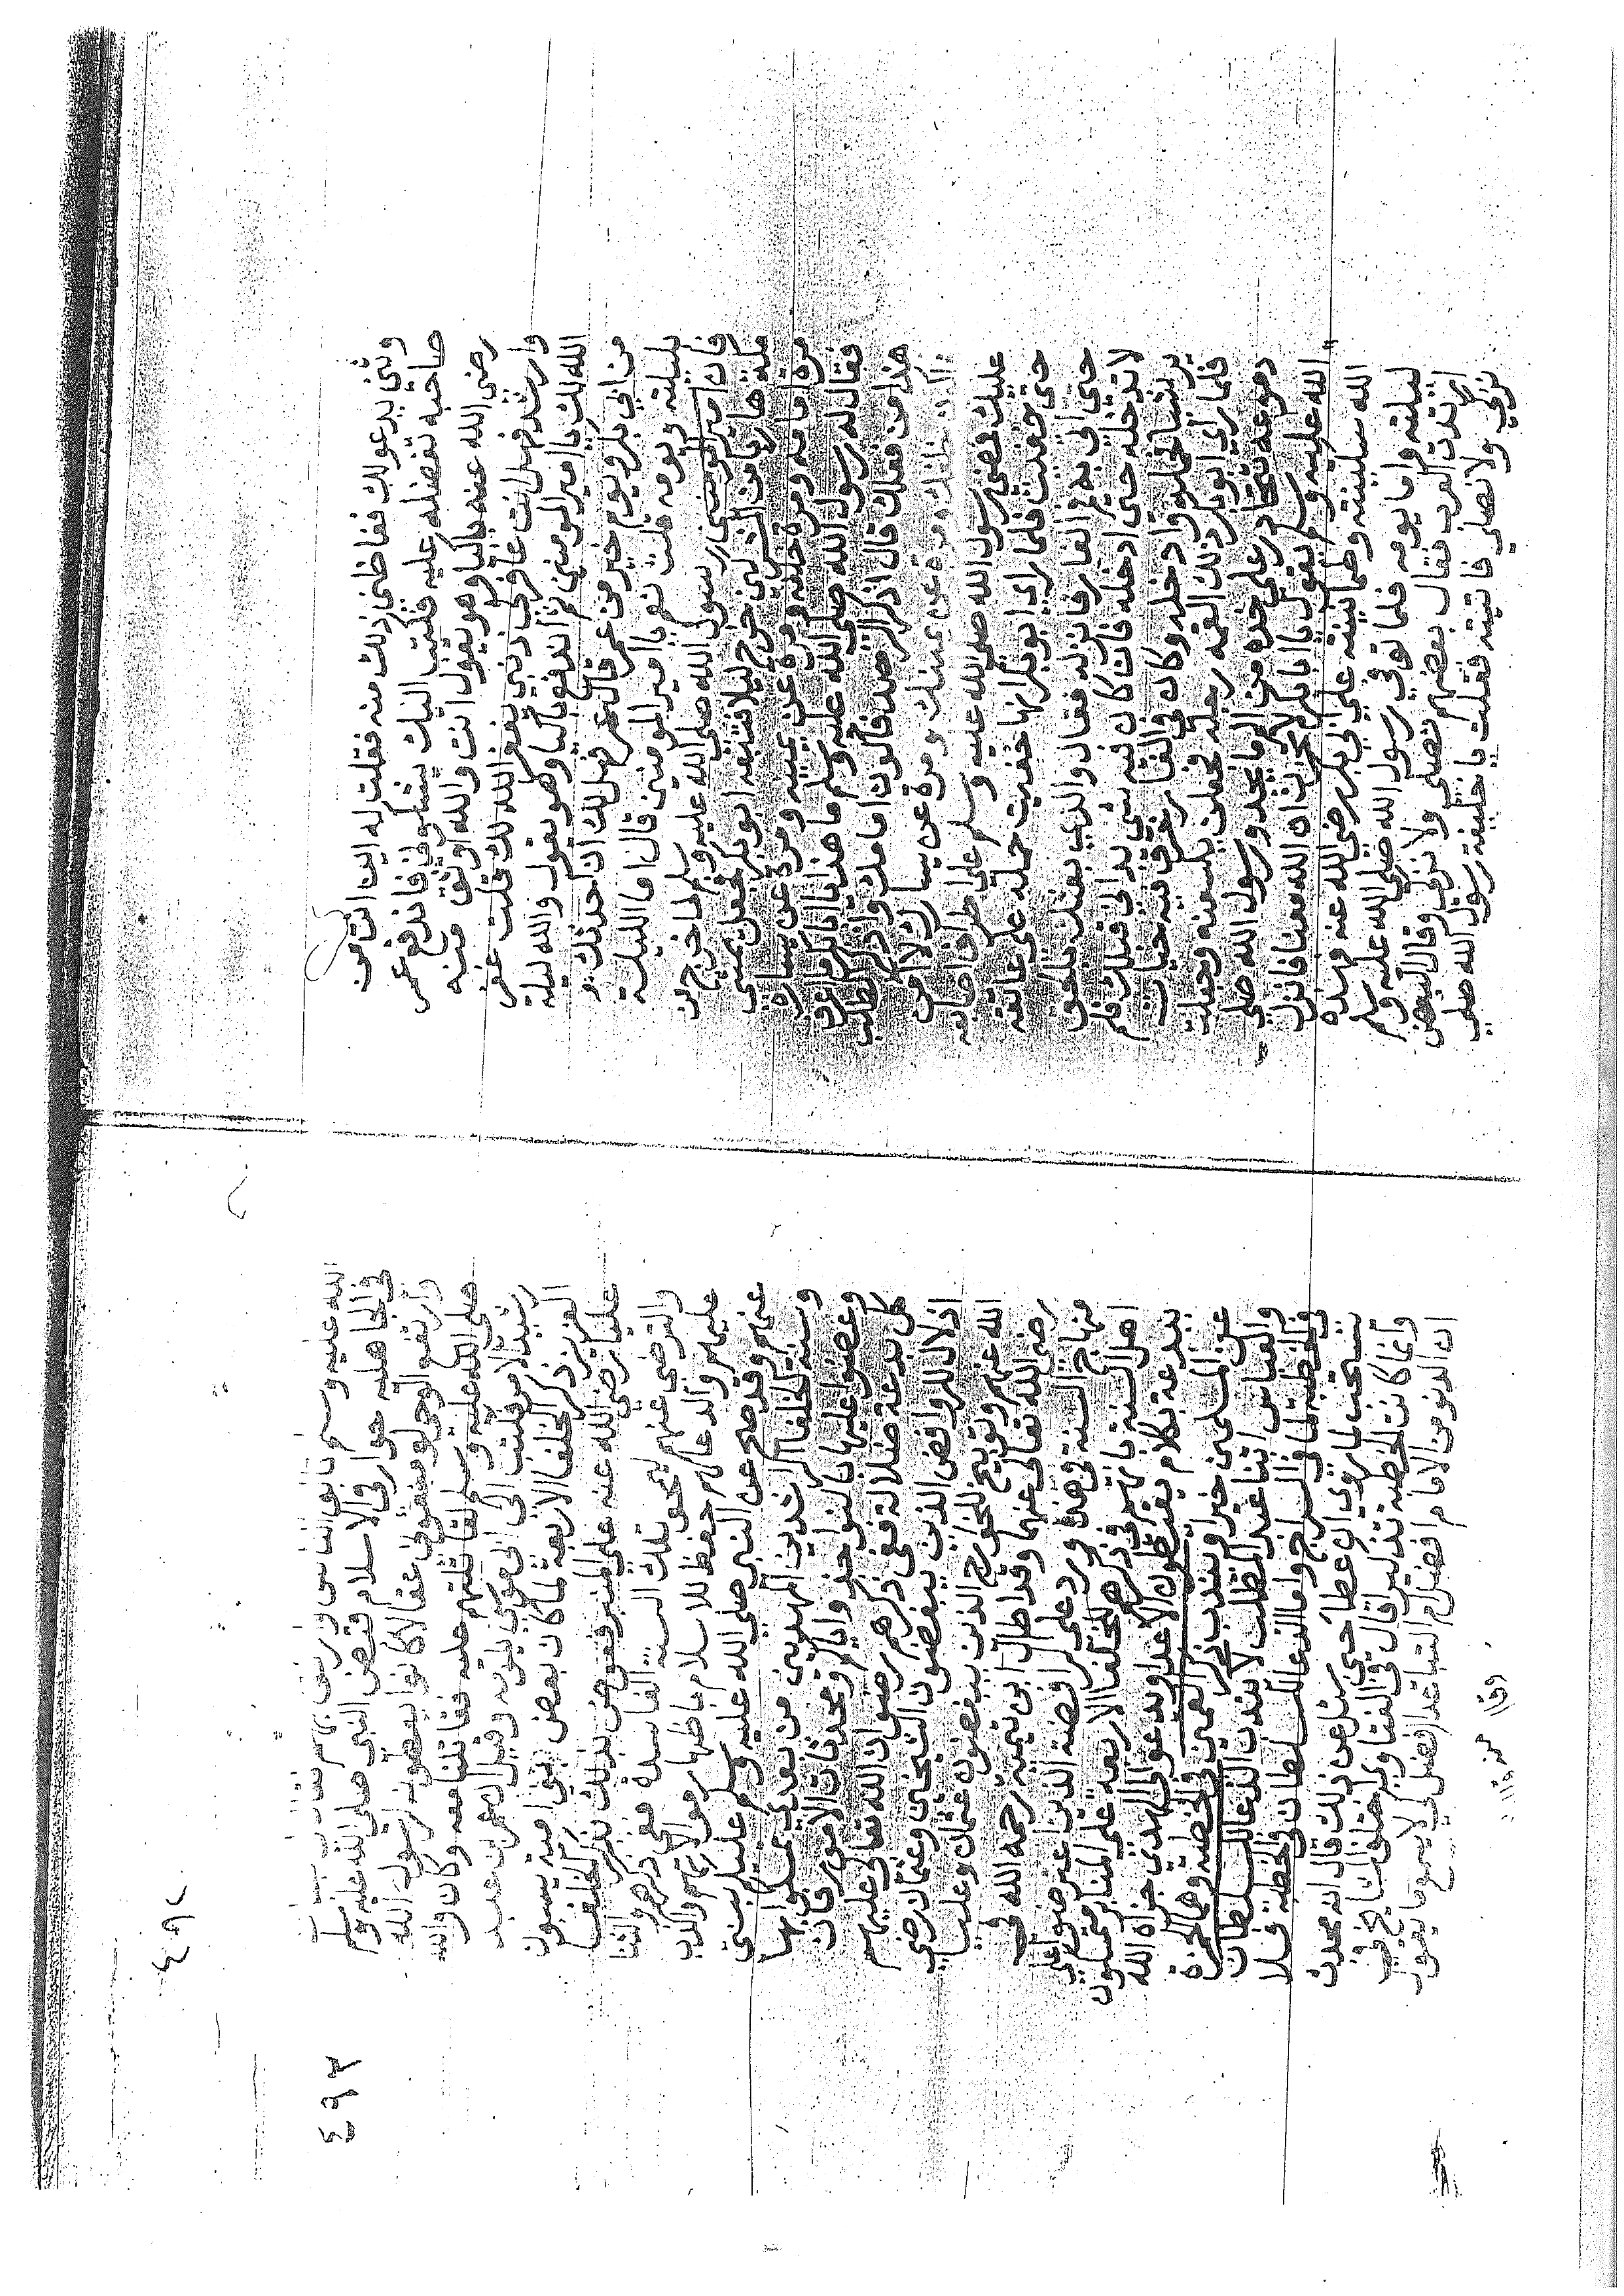 وثني يدعو لك فغاظني ذلك منه فقلت له اين انت من
صاحبه تفضله عليه فكتب اليك يشكوني فاندفع عمر
رضي الله عنه باكيا وهو يقول انت والله اوثق منه
وارشد فهل انت غافر لي ذنبي يغفر الله لك قلت غفر
الله لك يا امير المومنين ثم اندفع باكيا وهو يقول والله ليلة
من ابي بكر ويوم خير من عمر قال عمر فهل لك ان احدثك بـ
بليلته ويومه قلت نعم يا امير المومنين قال اما الليلة
فان امير المومنين رسول الله صلى الله عليه وسلم لما خرج من
مكة هاربا من المشركين خرج ليلا فتبعه ابو بكر فجعل يمشي
مرة امامه ومرة خلفه ومرة عن يمينه ومرة عن يساره
فقال له رسول الله صلى الله عليه وسلم ما هذا يا ابا بكر ما اعرف
هذا من فعلك قال اذكر الرصد فاكون امامك واذكر الطلب
فاكون خلفك ومرة عن يمينك ومرة عن يسارك لا آمن
عليك فمضى رسول الله صلى الله عليه وسلم على اطراف اصابعه
حتى حفيت فلما راى ابو بكر انها حفيت حمله على عاتقه
حتى اتى به فم الغار فانزله فقال والذي بعثك بالحق
لا تدخله حتى ادخله فان كان فيه شي بدا بي قبلك فلم
ير شيا فحمله وادخله وكان في الغار خرق فيه حيات
فلما راى ابو بكر ذلك القمه رجله فجعلن يلسعنه وجعلت
دموعه تتحادر على خده من الم ما يجد ورسول الله صلى
الله عليه وسلم يقول يا ابا بكر لا تحزن ان الله معنا فانزل
الله سكينته وطمانينته على ابي بكر رضي الله عنه فهذه
ليلته واما يومه فلما توفي رسول الله صلى الله عليه وسلم
ارتدت العرب فقال بعضهم نصلي ولا نزكي وقال البعض
نزكي ولا نصلي فاتيته فقلت يا خليفة رسول الله صلى
٤٩٢
٤٩٣
الله عليه وسلم تالف الناس وارفق بهم فقال
في الجاهلية خوار في الاسلام قبض النبي صلى الله عليه وسلم
وارتفع الوحي لو منعوني عقالا كانوا يعطونه رسول الله
صلى الله عليه وسلم لقاتلتهم عليه فقاتلنا معه وكان والله
رشيد الامر فكتب الى ابي موسى يلومه وقيل ان عمر بن عبد
العزيز ذكر الخلفا الاربعة لما كان بعض بني امية يسبون
عليا رضي الله عنه على المنبر فعوض بذلك بذكر الخلفا
والترضي عنهم ليمحو تلك السنة الفاسدة ففي ذكرهم والثنا
عليهم والدعا لهم حفظ للاسلام باظهار موالاتهم والذب
عنهم وقد صح عن النبي صلى الله عليه وسلم عليكم بسنتي
وسنة الخلفا الراشدين المهديين من بعدي تمسكوا بها
وعضوا عليها بالنواجذ واياكم ومحدثات الامور فان
كل بدعة ضلالة ففي ذكرهم رضوان الله تعالى عليهم
اذلال للروافض الذين يبغضون الشيخين وعثمان رضي
الله عنهم وتوبيخ للخوارج الذين يبغضون عثمان وعليا
رضي الله تعالى عنهما وقد اطال ابن تيمية رحمه الله في
منهاج السنة في هذا ورد على الرافضة الذين اعترضوا على
اهل السنة بانهم في ذكرهم الخلفا الاربعة على المنابر متمسكون
ببدعة بكلام يفتضحون الاعدا ويدعو الى الهدى جزاه الله
عن المسلمين خيرا ويندب ذكر العمين في الخطبة وهما الحمزة
والعباس اتباعا عند المطلب لا يندب الدعا للسلطان
في الخطبة لما في السراج واما الدعا للسلطان في الخطبة فلا
يستحب لما روي ان عطا حين سئل عن ذلك قال انه محدث
وانما كانت الخطبة تذكيرا قال في الفتاوى اختلف المشايخ في
ان الدنو من الامام افضل ام التباعد افضل كي لا يسمع ما يقول